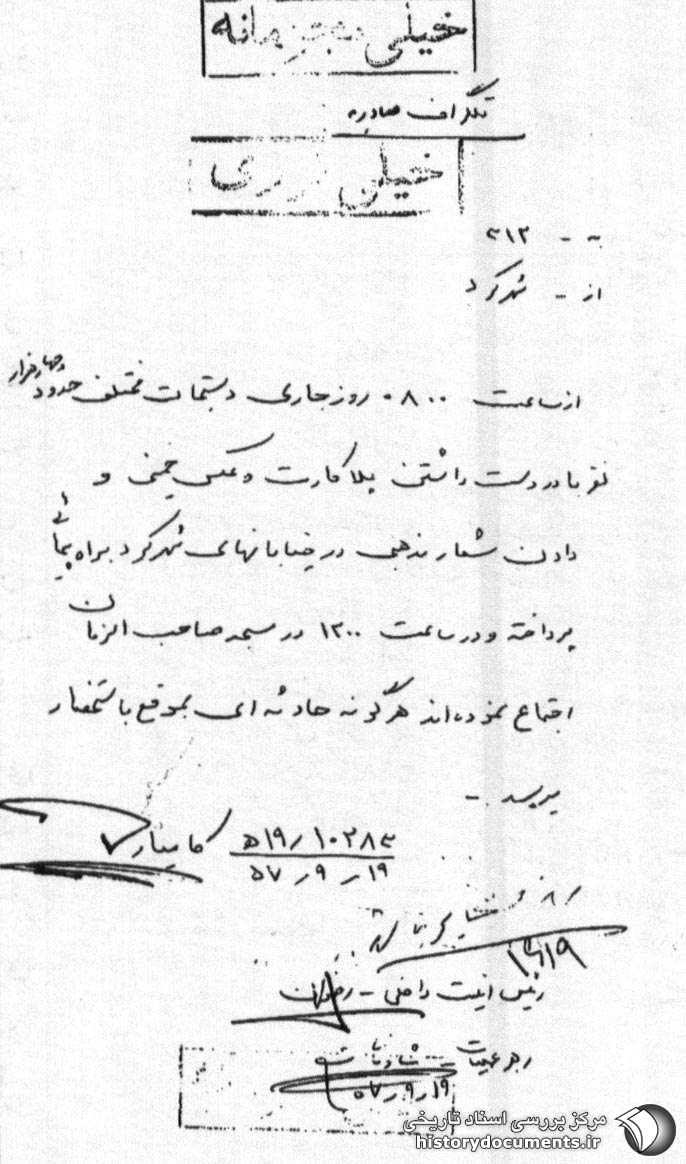 خیلی محرمانه
تلگراف صادره
خیلی فوری
به - ۳۱۲
از - شهرکرد
از ساعت ۰۸۰۰ روز جاری دستجات مختلف حدود چهار هزار
نفر با در دست داشتن پلاکارت و عکس خمینی و
دادن شعار مذهبی در خیابانهای شهرکرد براه پیمائی
پرداخته و در ساعت ۱۲۰۰ در مسجد صاحب الزمان
اجتماع نموده اند هرگونه حادثه ای بموقع باستحضار
میرسد -
۱۰۲۸۳ / ۱۹ ه کامیار
۱۹ ر ۹ ر ۵۷
رئیس امنیت داخلی - رضوان
رهبر عملیات
۱۹ ر ۹ ر ۵۷
مرکز بررسی اسناد تاریخی
historydocuments.ir